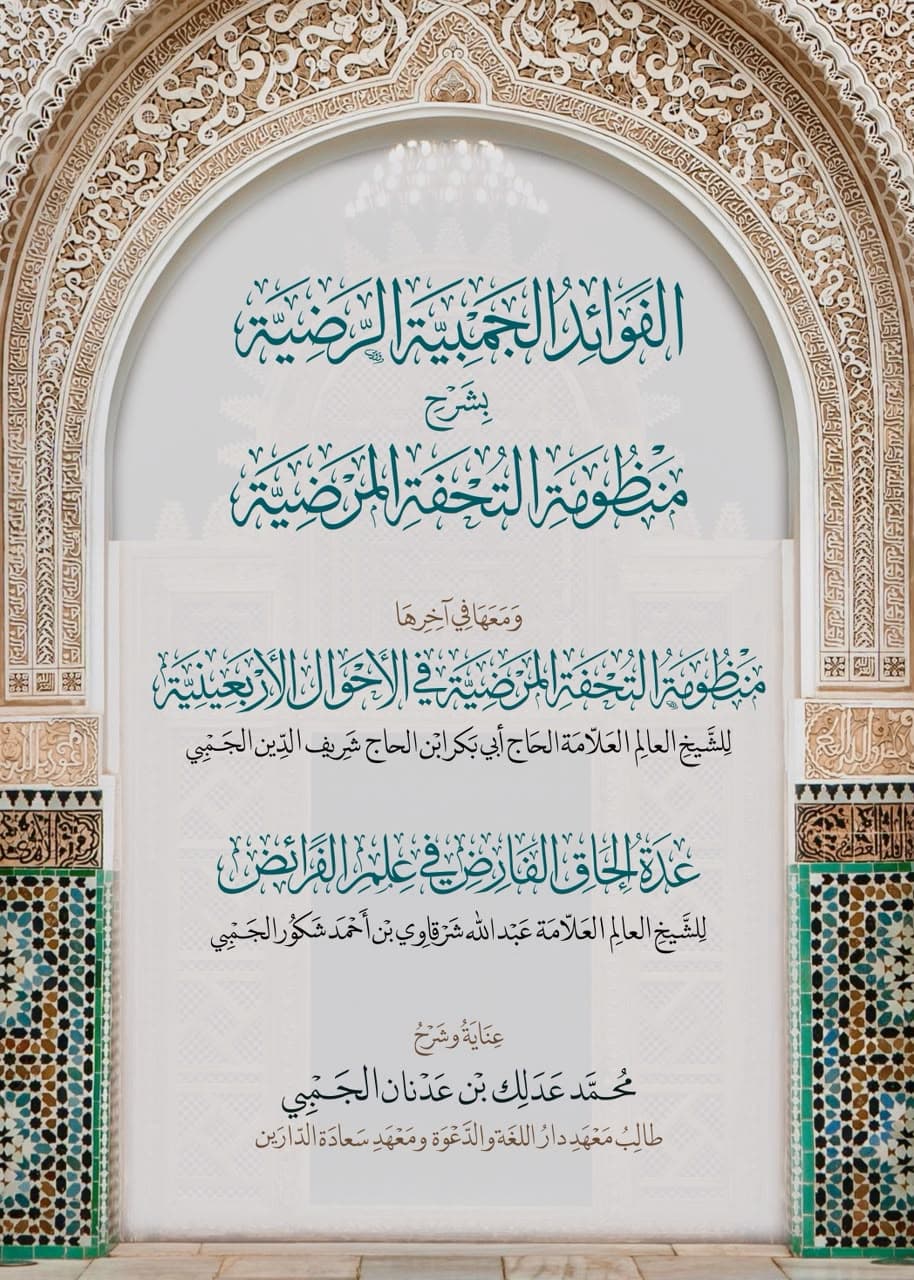 الفَوَائِدُ الجَمْبِيَّة الرَّضِيَّة
بِشَرْحِ
مَنْظُومَةِ التُّحْفَةِ المَرْضِيَّة
وَمَعَهَا فِي آخِرِهَا
مَنْظُومَةُ التُّحْفَةِ المَرْضِيَّة فِي الأَحْوَالِ الأَرْبَعِينِيَّة
لِلشَّيخِ العالِمِ العَلّامَة الحَاج أبي بَكر ابْن الحاج شَرِيف الدِّين الجَمْبِي
عُدَةُ لِحَاقِ الفَارِضِ فِي عِلْمِ الفَرَائِض
لِلشَّيخِ العالِمِ العَلّامَة عَبْد الله شَرْقاوِي بْن أَحْمَد شَكُور الجَمْبِي
عِنَايَةُ وشَرْحُ
مُحَمَّد عَدَلِك بْن عَدْنان الجَمْبِي
طالِبُ مَعْهَدِ دارُ اللغَة والدَّعْوَة ومَعْهَدِ سَعادَة الدّارَين